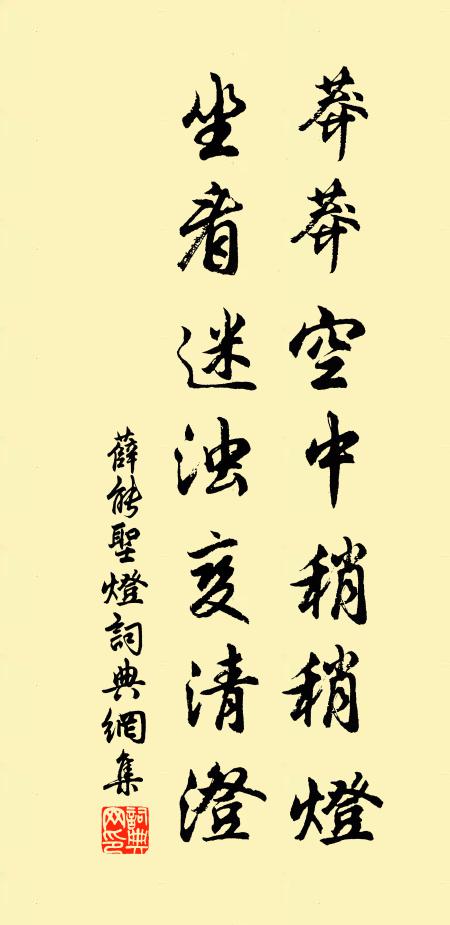 莽莽空中稍稍燈
坐看迷浊变清澄
薛能聖燈詞典網集
詞典网印